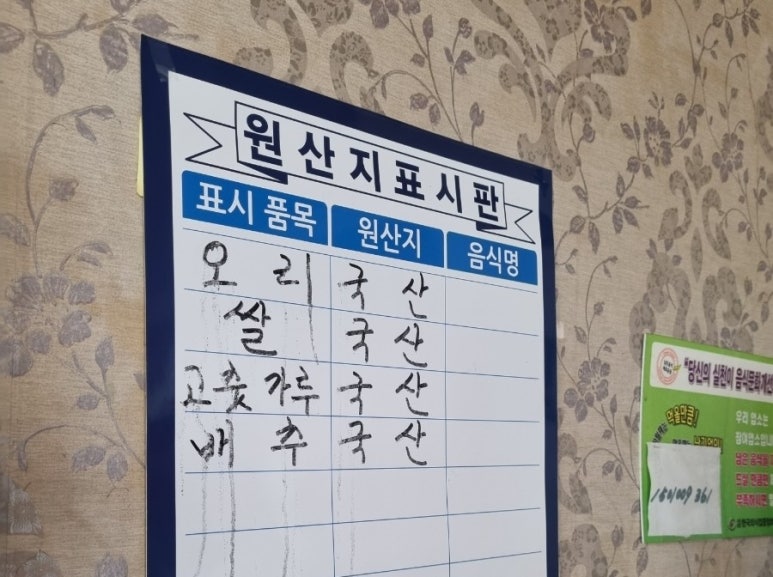 원산지표시판
표시 품목 원산지 음식명
오리 국산
쌀 국산
고춧가루 국산
배추 국산
"당신의 실천이 음식문화개선
먹을만큼!
우리 업소는
남은 음식을